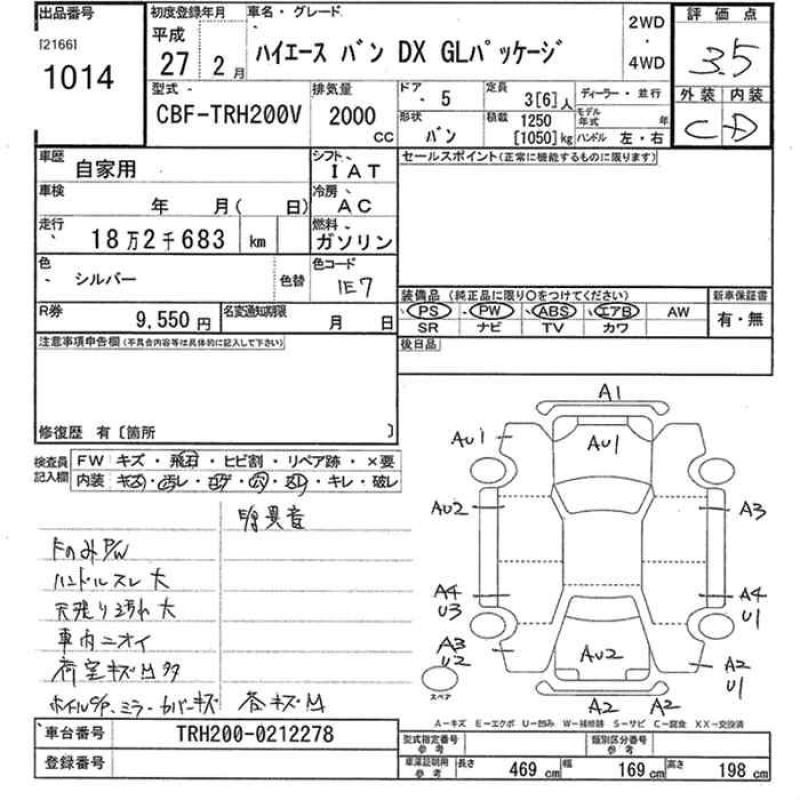 出品番号
[2166]
1014
初度登録年月
平成
27 2 月
車名・グレード
ハイエース バン DX GLパッケージ
2WD
・
4WD
評価点
3.5
外装 内装
C D
型式
CBF-TRH200V
排気量
2000
CC
ドア
5
定員
3[6]人
ディーラー・並行
形状
バン
積載 1250
[1050]kg
モデル年式 年
ハンドル 左・右
車歴
自家用
シフト
IAT
セールスポイント(正常に機能するものに限ります)
車検
年 月( 日)
冷房
AC
走行
18万2千683 km
燃料
ガソリン
色
シルバー
色替
色コード
1E7
R券
9,550 円
名変通知期限
月 日
装備品 (純正品に限り○をつけてください)
PS PW ABS エアB AW
SR ナビ TV カワ
新車保証書
有・無
後日品
注意事項申告欄(不具合内容等は具体的に記入して下さい)
修復歴 有〔箇所 〕
検査員
記入欄
FW キズ・飛石・ヒビ割・リペア跡・×要
内装 キズ・汚レ・コゲ・穴・スレ・キレ・破レ
異音
FのみP/W
ハンドルスレ大
天張り汚れ大
車内ニオイ
荷室キズM多
ホイルC/P、ミラーカバーキズ 各キズM
A1
AU1
AU1
AU2
A3
A4
U3
A4
U1
A3
U2
AU2
A2
U1
A2 A2
スペア
A-キズ E-エクボ U-凹み W-補修跡 S-サビ C-腐食 XX-交換済
車台番号
TRH200-0212278
登録番号
型式指定番号
参考
類別区分番号
参考
車庫証明用
参考
長さ 469 cm
幅 169 cm
高さ 198 cm